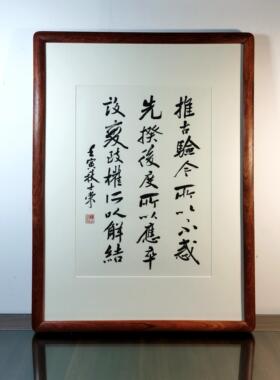 推古驗今所以不惑
先揆後度所以應卒
設變致權所以解結
壬寅